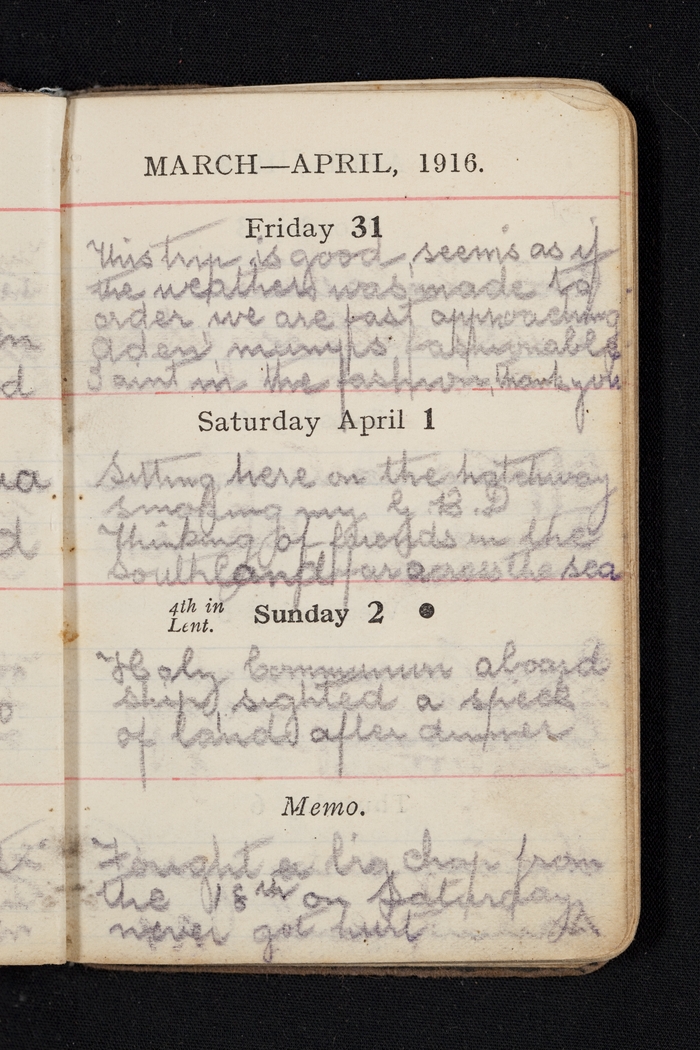 MARCH—APRIL, 1916.
Friday 31
This trip is good, seems as if
the weathers was made to
order we are fast approaching
Aden is fashionable
I aint in the fashion, thank you
Saturday April 1
Sitting here on the hatchway
smoking my G.B.D
Thinking of friends in the
Southland far across the sea
4th in
Lent.
Sunday 2
Holy Communion aboard
ship, sighted a speck
of land after dinner
Memo.
Fought a big chap from
the 18th on Saturday
never got hurt